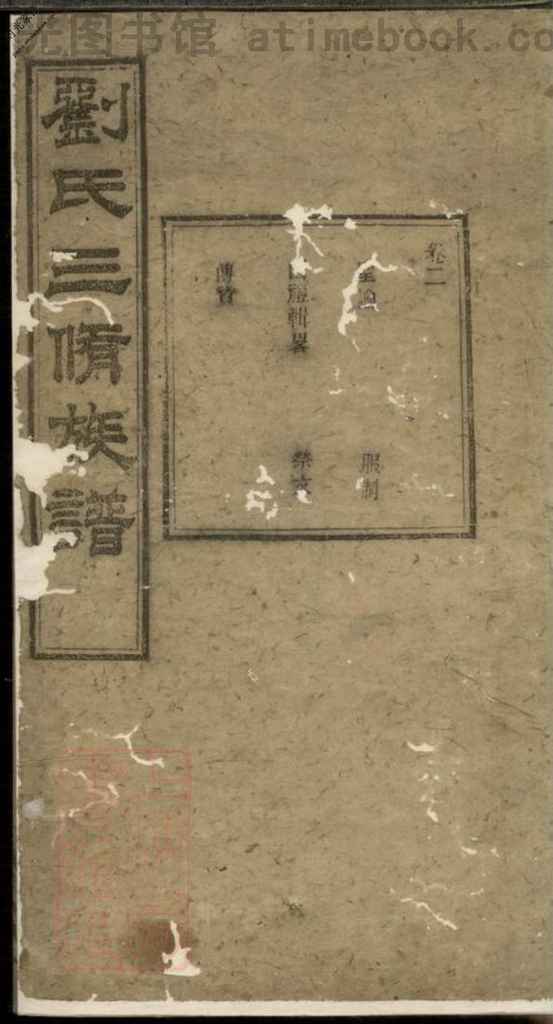 光图书馆 atimebook.co
劉氏三脩族譜
卷二
聖諭
服制
禮輯畧
祭文
傳贊